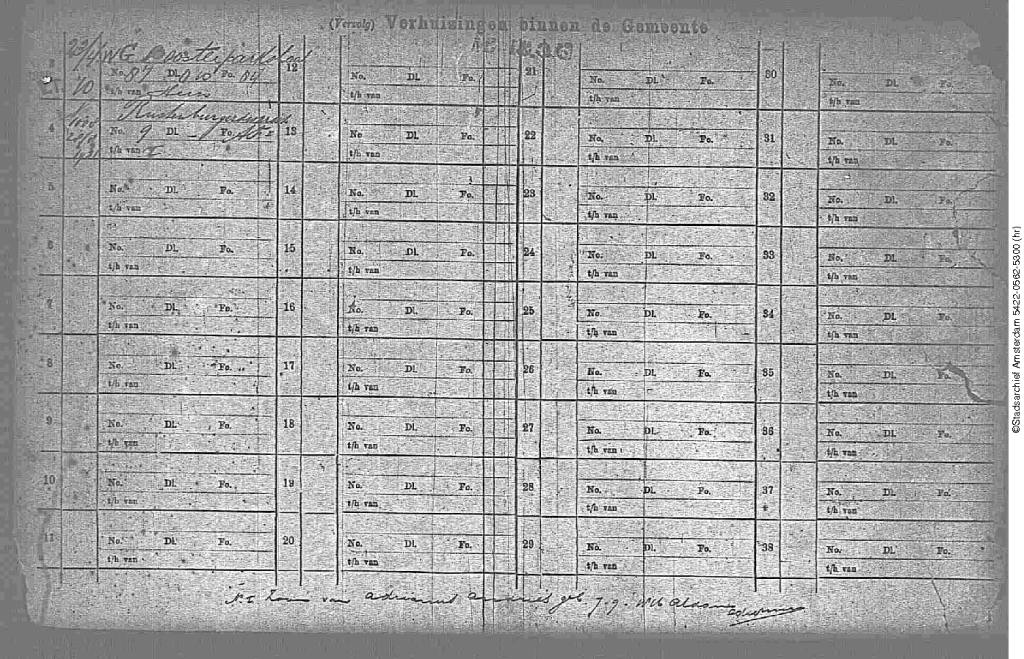 (Vervolg) Verhuizingen binnen de Gemeente
3 23/4 WG Oosterparkstraat
No. 87 Dl. Fo.
10 t/h van
4
No. 9 Dl. Fo.
t/h van
5 No. Dl. Fo.
t/h van
6 No. Dl. Fo.
t/h van
7 No. Dl. Fo.
t/h van
8 No. Dl. Fo.
t/h van
9 No. Dl. Fo.
t/h van
10 No. Dl. Fo.
t/h van
11 No. Dl. Fo.
t/h van
12 No. Dl. Fo.
t/h van
13 No Dl. Fo.
t/h van
14 No. Dl. Fo.
t/h van
15 No. Dl. Fo.
t/h van
16 No. Dl. Fo.
t/h van
17 No. Dl. Fo.
t/h van
18 No. Dl. Fo.
t/h van
19 No. Dl. Fo.
t/h van
20 No. Dl. Fo.
t/h van
21 No. Dl. Fo.
t/h van
22 No. Dl. Fo.
t/h van
23 No. Dl. Fo.
t/h van
24 No. Dl. Fo.
t/h van
25 No. Dl. Fo.
t/h van
26 No. Dl. Fo.
t/h van
27 No. Dl. Fo.
t/h van
28 No. Dl. Fo.
t/h van
29 No. Dl. Fo.
t/h van
30 No. Dl. Fo.
t/h van
31 No. Dl. Fo.
t/h van
32 No. Dl. Fo.
t/h van
33 No. Dl. Fo.
t/h van
34 No. Dl. Fo.
t/h van
35 No. Dl. Fo.
t/h van
36 No. Dl. Fo.
t/h van
37 No. Dl. Fo.
t/h van
38 No. Dl. Fo.
t/h van
van geb.
©Stadsarchief Amsterdam 5422-0562-5300 (hr)